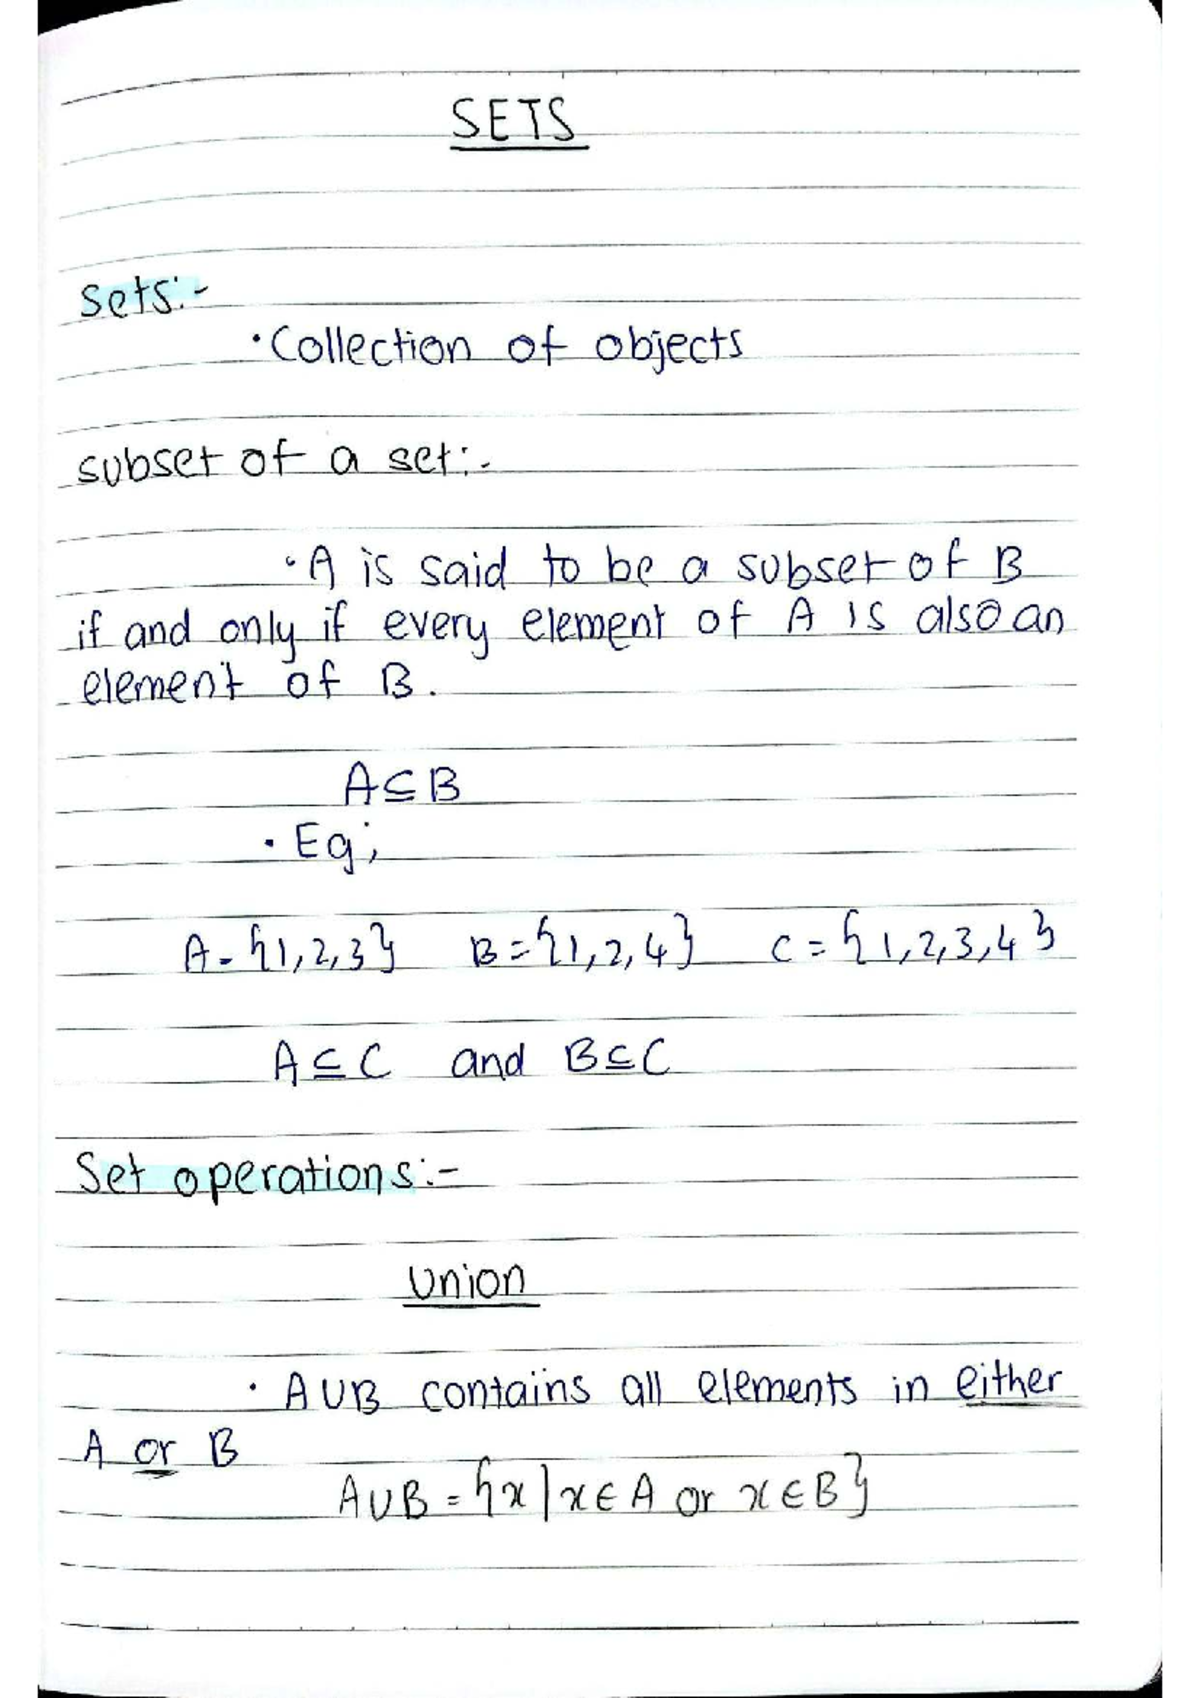 SETS
Sets:-
·Collection of objects
subset of a set:-
·A is said to be a subset of B
if and only if every element of A is also an
element of B.
A⊆B
·Eg;
A={1,2,3} B={1,2,4} C={1,2,3,4}
A⊆C and B⊆C
Set operations:-
Union
·A∪B contains all elements in either
A or B
A∪B={x|x∈A or x∈B}